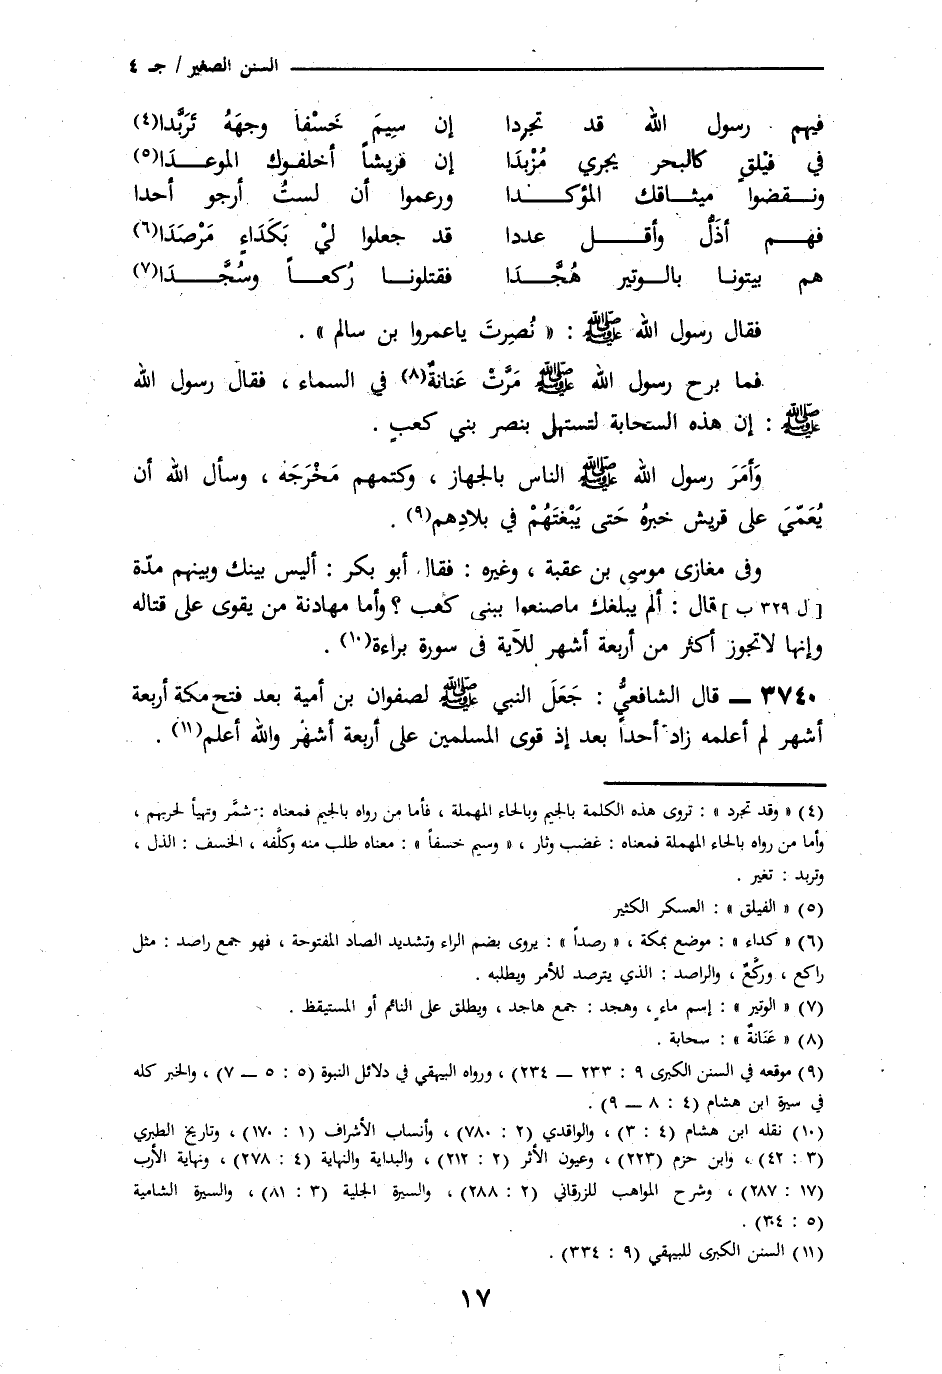 السنن الصغير / جـ ٤
فيهم رسول الله قد تجردا إن سِيمَ خَسْفاً وجهَهُ تَرَبَّدا(٤)
في فَيْلقٍ كالبحر يجري مُزْبدَا إن قريشاً أخلفوك الموعـدَا(٥)
ونـقضوا ميثـاقك المؤكـدا ورعموا أن لستُ أرجو أحدا
فهـم أذَلُّ وأقـل عددا قد جعلوا ليْ بَكَدَاءٍ مَرْصَدَا(٦)
هم بيتونا بالـوتير هُجَّدَا فقتلونـا رُكعـاً وسُجَّـدَا(٧)
فقال رسول الله ﷺ : « نُصِرتَ ياعمروا بن سالم » .
فما برح رسول الله ﷺ مَرَّتْ عَنانةٌ(٨) في السماء ، فقال رسول الله
ﷺ : إن هذه السحابة لتستهل بنصر بني كعبٍ .
وَأَمَرَ رسول الله ﷺ الناس بالجهاز ، وكتمهم مَخْرَجَه ، وسأل الله أن
يُعَمّيَ على قريش خبرهُ حَتى يَبْغتَهُمْ في بلادِهم(٩) .
وفى مغازى موسى بن عقبة ، وغيره : فقال أبو بكر : أليس بينك وبينهم مدّة
[ ل ٣٢٩ ب ] قال : ألم يبلغك ماصنعوا ببنى كعب ؟ وأما مهادنة من يقوى على قتاله
وإنها لاتجوز أكثر من أربعة أشهر للآية فى سورة براءة(١٠) .
٣٧٤٠ ــ قال الشافعيُّ : جَعَلَ النبي ﷺ لصفوان بن أمية بعد فتح مكة أربعة
أشهر لم أعلمه زاد أحداً بعد إذ قوى المسلمين على أربعة أشهر والله أعلم(١١) .
(٤) « وقد تجرد » : تروى هذه الكلمة بالجيم وبالحاء المهملة ، فأما من رواه بالجيم فمعناه : شمَّر وتهيأ لحربهم ،
وأما من رواه بالحاء المهملة فمعناه : غضب وثار ، « وسيم خسفاً » : معناه طلب منه وكلَّفه ، الخسف : الذل ،
وتربد : تغير .
(٥) « الفيلق » : العسكر الكثير
(٦) « كداء » : موضع بمكة ، « رصداً » : يروى بضم الراء وتشديد الصاد المفتوحة ، فهو جمع راصد : مثل
راكع ، وركَّعٌ ، والراصد : الذي يترصد للأمر ويطلبه .
(٧) « الوتير » : إسم ماء ، وهجد : جمع هاجد ، ويطلق على النائم أو المستيقظ .
(٨) « عَنَانةٌ » : سحابة .
(٩) موقعه في السنن الكبرى ٩ : ٢٣٣ ــ ٢٣٤) ، ورواه البيهقي في دلائل النبوة (٥ : ٥ ــ ٧) ، والخبر كله
في سيرة ابن هشام (٤ : ٨ ــ ٩) .
(١٠) نقله ابن هشام (٤ : ٣) ، والواقدي (٢ : ٧٨٠) ، وأنساب الأشراف (١ : ١٧٠) ، وتاريخ الطبري
(٣ : ٤٢) ، وابن حزم (٢٢٣) ، وعيون الأثر (٢ : ٢١٢) ، والبداية والنهاية (٤ : ٢٧٨) ، ونهاية الأرب
(١٧ : ٢٨٧) ، وشرح المواهب للزرقاني (٢ : ٢٨٨) ، والسيرة الحلبية (٣ : ٨١) ، والسيرة الشامية
(٥ : ٣٠٤) .
(١١) السنن الكبرى للبيهقي (٩ : ٣٣٤) .
١٧